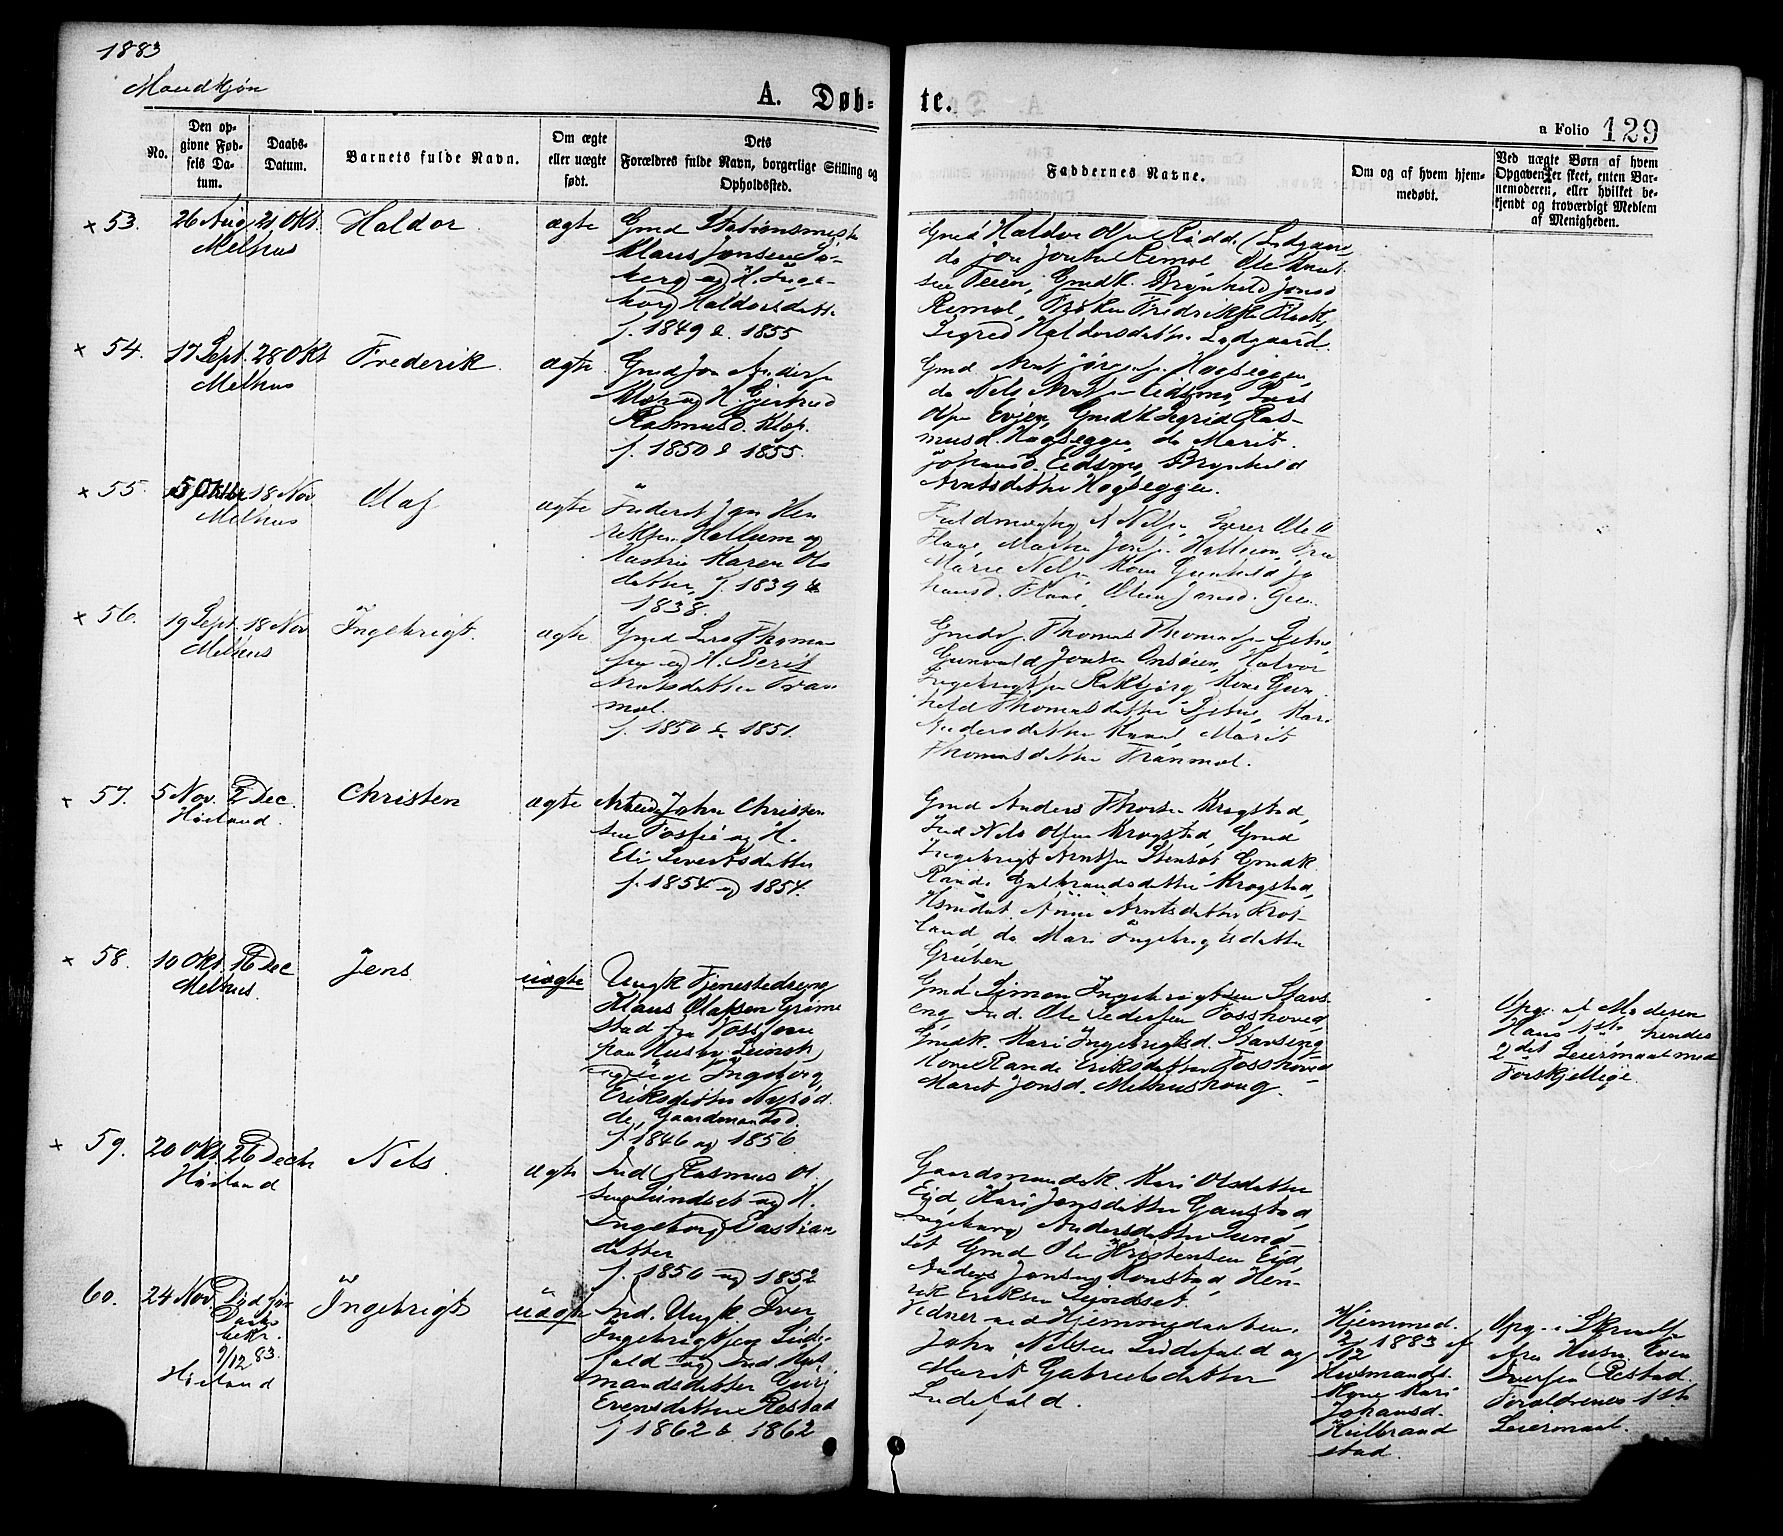 1883
Mandkjøn
A. Døb=
te.
a Folio 129
No.
Den op-
givne Fød-
sels Da-
tum.
Daabs-
Datum.
Barnets fulde Navn.
Om ægte
eller uægte
født.
Dets
Forældres fulde Navn, borgerlige Stilling og
Opholdssted.
Faddernes Navne.
Om og af hvem hjem-
medøbt.
Ved uægte Børn af hvem
Opgaven er skeet, enten Bar-
nemoderen, eller hvilket be-
kjendt og troværdigt Medlem
af Menigheden.
× 53. 26 Aug. 21 Okt. Haldor ægte
Melhus
Gmd Stationsmester
Klaus Jonsen Sø-
berg og H. Inge-
borg Haldorsdatter
f. 1849 & 1855
Gmd Haldor Olsen Rødd
do Jon Jonsen Remol, Ole Knut-
sen Teien, Gmdk. Brynhild Jonsd
Remol, Frøken Fredrikke Fleck,
Sigrid Haldorsdatter Ladgaard.
× 54. 17 Sept. 28 Okt Frederik ægte
Melhus
Gmd Jon Anders
Klop og H. Gjertrud
Rasmusd. Klop.
f. 1850 & 1855.
Gmd Arnt Jørgens. Hagseggen,
do Nils Arnts. Eidsmo, Lars
Olsen Evjen, Gmdk Sigrid Ras-
musd. Hagseggen do Marit
Johansd. Eidsmo, Brynhild
Arntsdatter Hagseggen.
× 55. 5 Oktbr 18 Nov Olaf ægte
Melhus
Inderst Jon Hen
riksen Hallum og
Hustru Karen Ols
datter, f. 1839 &
1838.
Fuldmægtig A Nilsen, Lærer Ole O
Flaae, Marten Johs. Hallum, Fru
Marie Nilsen, Kone Gunhild Jo
hansd. Flaae,
× 56. 19 Sept. 18 Nov Ingebrigt. ægte
Melhus
Gmd Lars Thomas
sen og H. Berit
Arntsdatter Tran
mæl.
f. 1850 & 1851.
Thomas Thomassen
Gunvald Jonsen Onsøien, Halvor
Ingebrigtsen Rakbjørg Kone Gun
hild Thomasdatter Kari
Andersdatter Marit
Thomasdatter Tranmæl.
× 57. 5 Nov. 2 Dec. Christen ægte
Høiland.
Arbeid. John Christen
sen Fosse og H.
Eli Sivertsdatter
f. 1854 og 1854.
Gmd Anders Thorsen Krogstad,
Ind Nils Olsen Krogstad, Gmd
Ingebrigt Arntsen Stensæt Gmdk.
Randi Gulbrandsdatter Krogstad,
Hsmdat. Anne Arntsdatter Krog
land do Mari Ingebrigtsdatter
Gruben
× 58. 10 Okt. 16 Dec Jens uægte
Melhus.
Ungk Tjenestedreng
Klaus Olafsen Grime
stad fra Voss, som
paa Husby, Leinstr.
og Pige Ingeborg
Eriksdatter Nyrød
de, Gaardmandsd.
f. 1846 og 1856.
Gmd Simon Ingebrigtsen Stavs
eng, Ind. Ole Pedersen Fosshoug,
Gmdk. Mari Ingebrigtsd. Stavseng
Kone Randi Eriksdatter Fosshoug
Marit Jonsd. Melhushoug.
Opg. af Moderen
Hans 1ste hendes
2det Leiermaal med
Forskjellige.
× 59. 20 Okt. 26 Decbr Nils. ægte
Høiland
Ind Rasmus Ol
sen Lundset og H.
Ingeborg Bastian
datter
f. 1850 og 1852
Gaardmandsk. Kari Olsdatter
Eid, Kari Jonsdatter Gaustad,
Ingeborg Andersdatter Lund
set Gmd Ole Kristensen Eid,
Anders Jonsen Konstad, Hen-
rik Eriksen
60. 24 Nov. Død før Ingebrigt uægte
Daabs
bekr.
9/12 83.
Høiland
Ind. Ungk. Iver
Ingebrigtsen Lide-
fald og Ind Hus
mandsdatter Guri
Evensdatter Røstad
f 1862 & 1862
Vidner ved Hjemmedaaben.
John Nilsen Lidefald og
Marit Gabrielsdatter
Lidefald.
Hjemmed.
2/12 1883 af
Husmands.
Kone Mari
Johansd.
Hulbrand
stad.
Opg. i Skrivelse
fra Husm. Even
Iversen Røstad.
Forældrenes 1ste
Leiermaal.